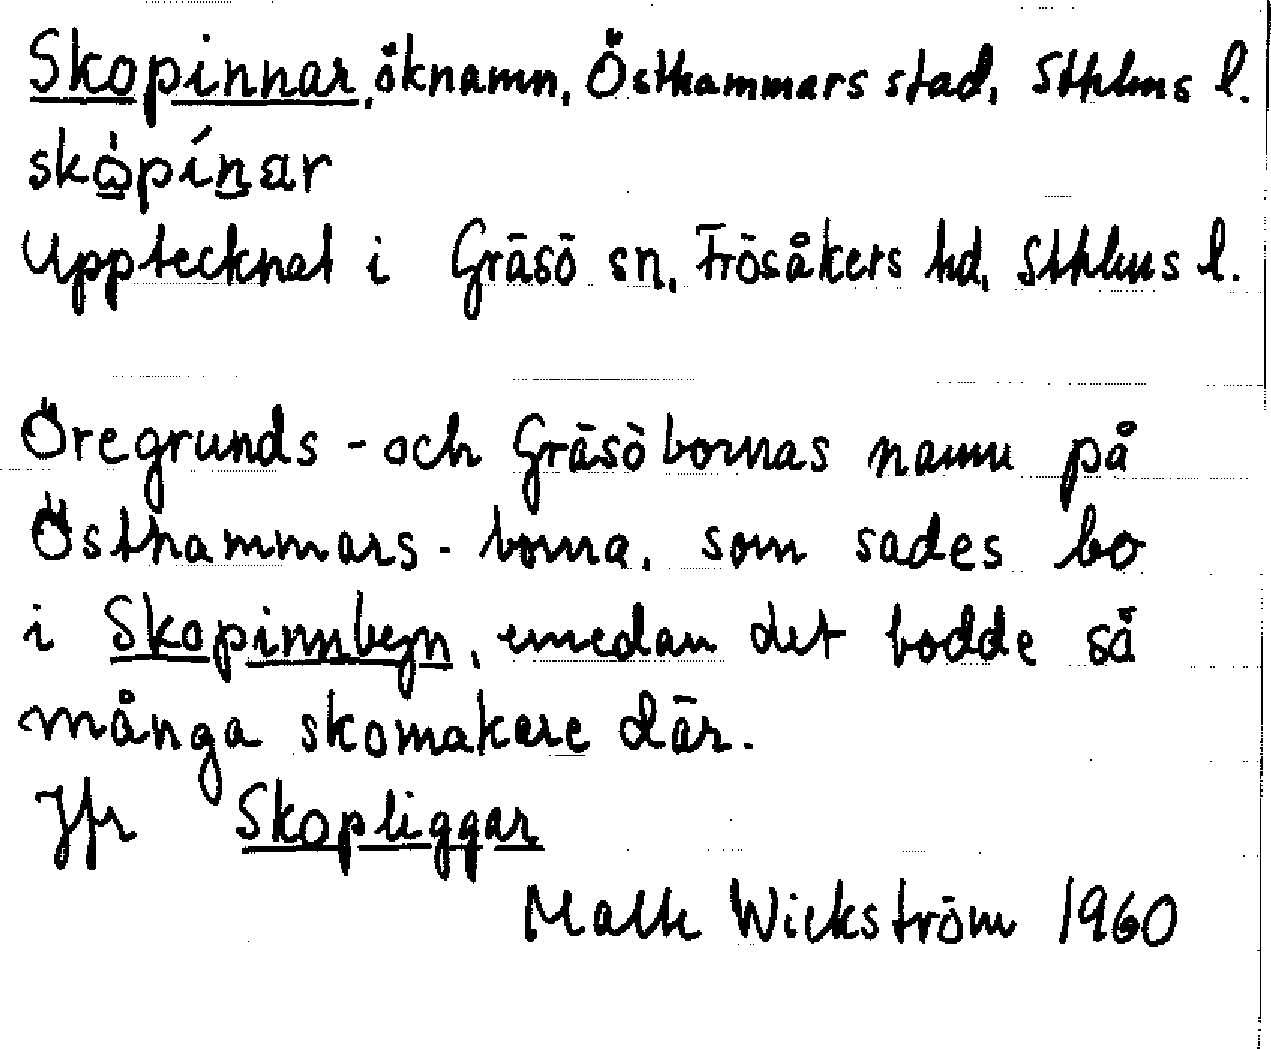 Skopinnar, öknamn, Östhammars stad, Sthlms l.
skὼpínar
Upptecknat i Gräsö sn, Frösåkers hd, Sthlms l.
Öregrunds- och Gräsöbornas namn på
Östhammars-borna, som sades bo
i Skopinnbyn, emedan det bodde så
många skomakare där.
Jfr Skopliggar
Wickström 1960